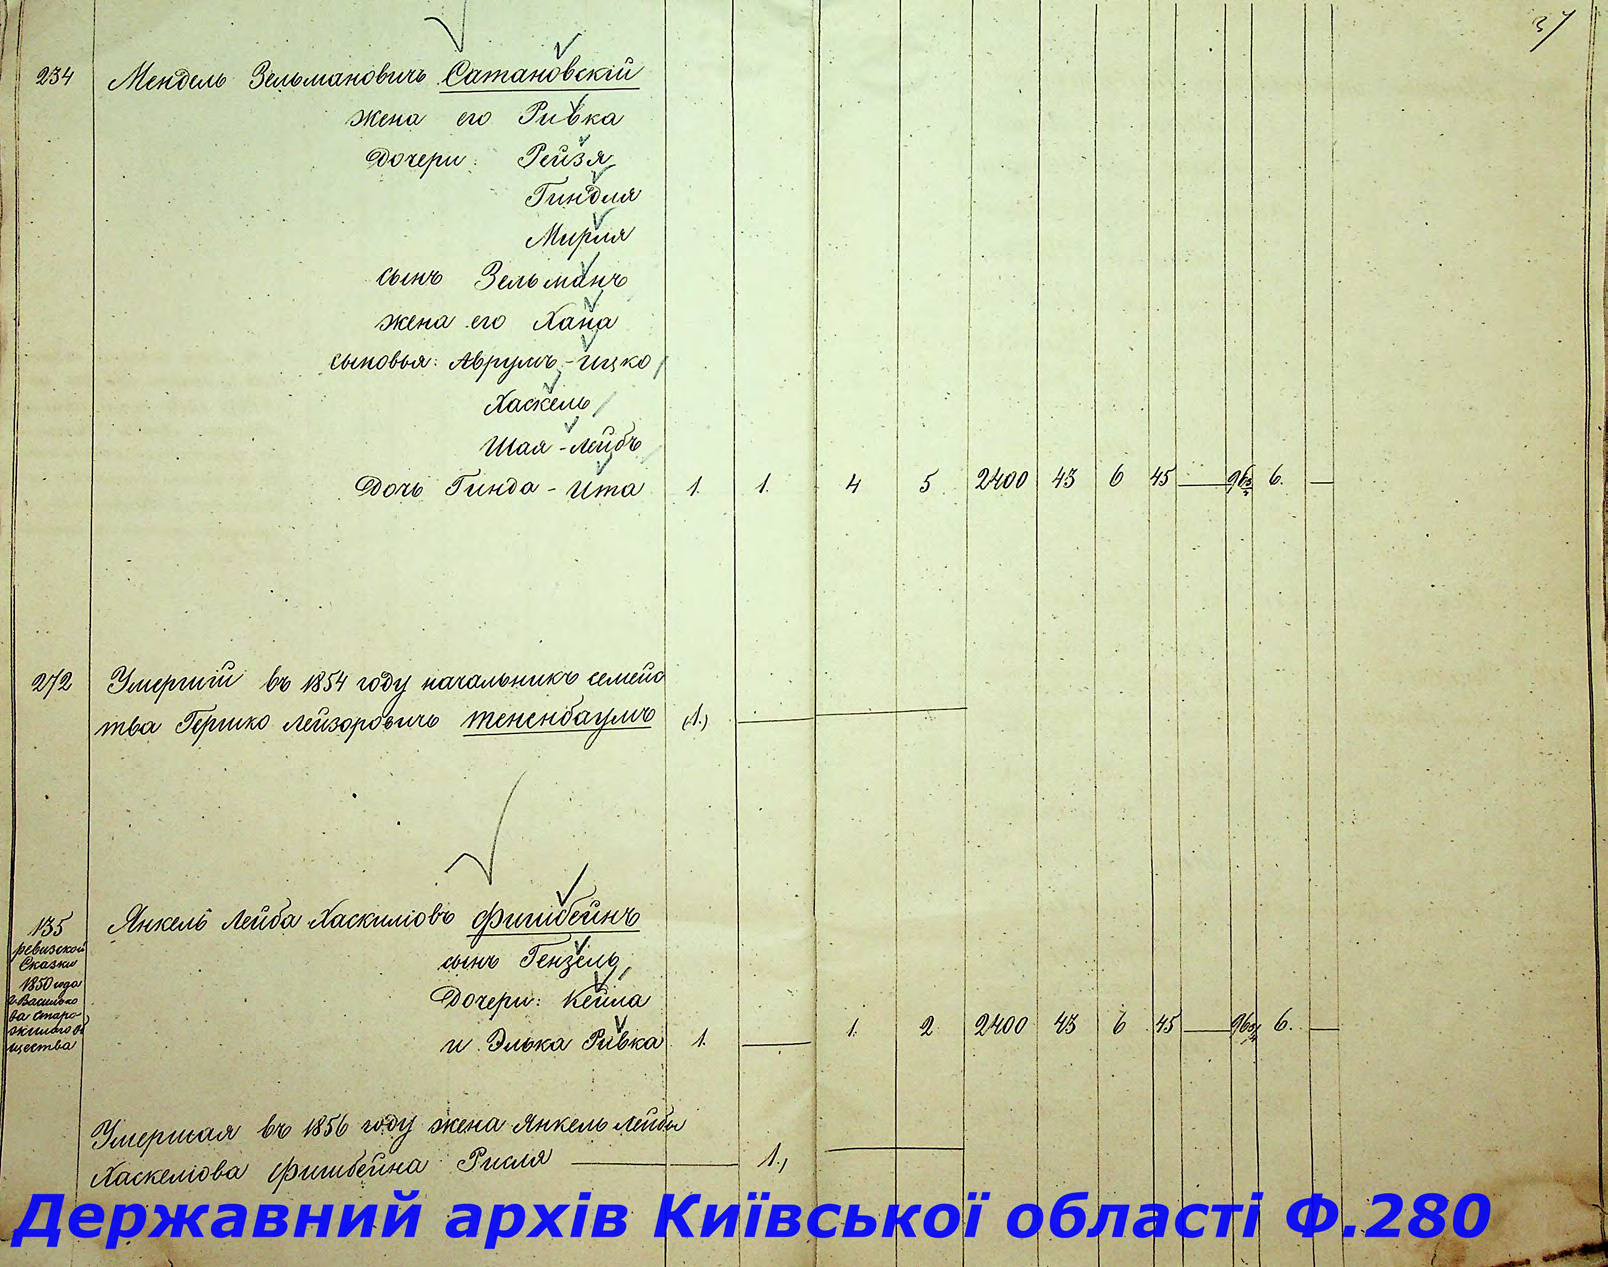 37
234 Мендель Зельмановичъ Сатановскій
жена его Ривка
Дочери: Рейзя
Гиндля
Мирля
сынъ Зельманъ
жена его Хана
сыновья: Аврумъ-Ицко
Хаскель
Шая-Лейбъ
Дочь Гинда-Ита 1. 1. 4 5 2400 43 6 45 — 6. —
272 Умершій въ 1854 году начальникъ семейс
тва Гершко Лейзоровичъ Тененбаумъ (1.) —
135 Янкель Лейба Хаскиліовъ Фишбейнъ
ревизской
Сказки
1850 года
г. Василько
ва старо-
жилого об
щества
сынъ Гензель,
Дочери: Кейла
и Элька Ривка 1. — 1. 2 2400 43 6 45 — 6. —
Умершая въ 1856 году жена Янкель Лейбы
Хаскеліова Фишбейна Рисля — 1.,
Державний архів Київської області Ф.280